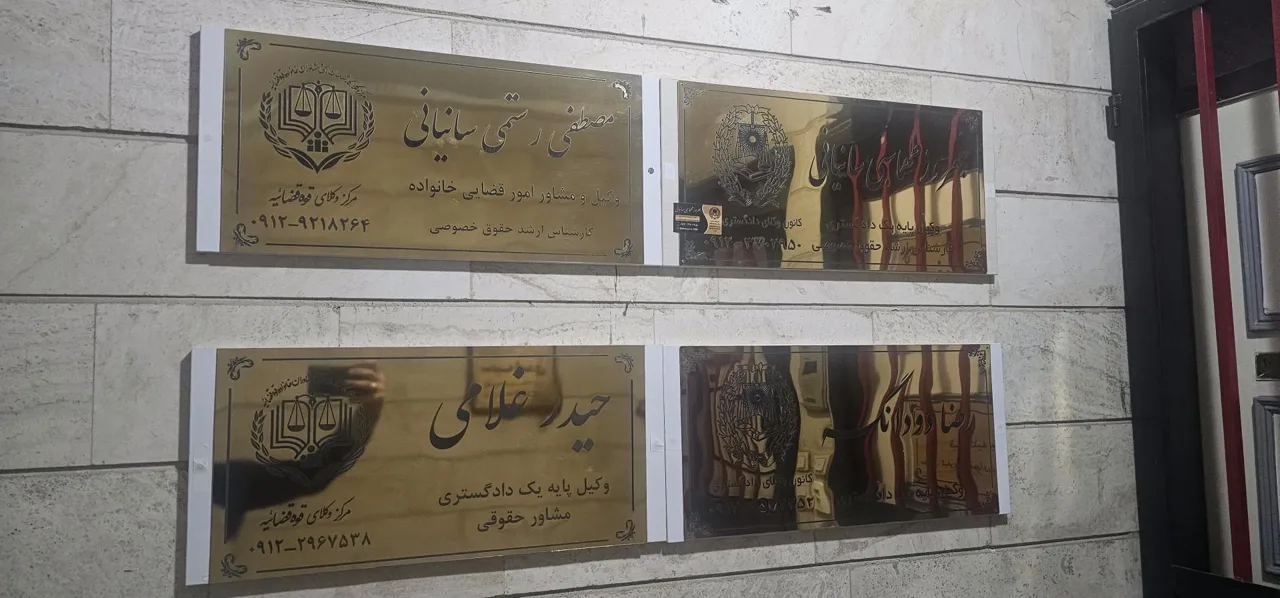 مصطفی رستمی سانیانی
وکیل و مشاور امور قضایی خانواده
کارشناس ارشد حقوق خصوصی
مرکز وکلای قوه قضائیه
۰۹۱۲-۹۲۱۸۲۶۴
سانیانی
وکیل پایه یک دادگستری
کارشناس ارشد حقوق خصوصی
کانون وکلای دادگستری
حیدر غلامی
وکیل پایه یک دادگستری
مشاور حقوقی
مرکز وکلای قوه قضائیه
۰۹۱۲-۲۹۶۷۵۳۸
رضا دودانگه
وکیل پایه یک دادگستری
کانون وکلای دادگستری